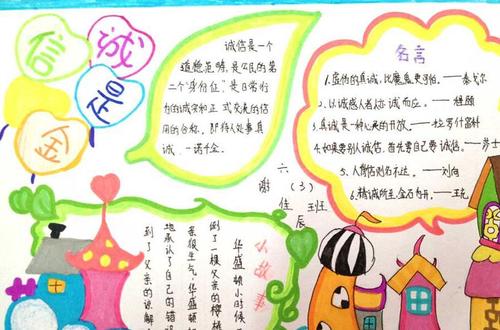 诚
信
是
金
诚信是一个
道德范畴,是公民的第
二个“身份证”,是日常行
为的诚实和正式交流的信用
的合称。即待人处事真
诚、一诺千金。
名言
1.虚伪的真诚,比魔鬼更可怕。——泰戈尔
2.以诚感人者,人亦诚而应。——程颐
3.真诚是一种心灵的开放。——拉罗什富科
4.如果要别人诚信,首先要自己要诚信。——莎士
5.人背信则名不达。——刘向
6.精诚所至,金石为开。——王充
六(3)班
谢佳辰
小故事
华盛顿小时候
倒了一棵父亲的樱桃
亲很生气,华盛顿
地承认了自己的错
到了父亲的谅解